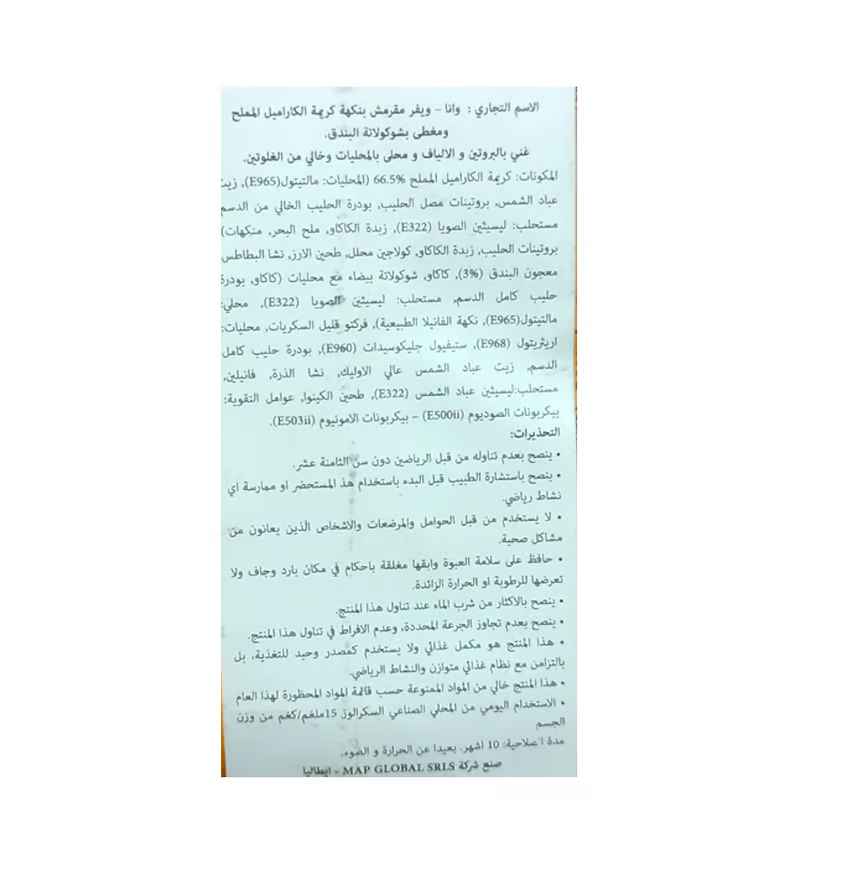 الاسم التجاري : وانا – ويفر مقرمش بنكهة كريمة الكاراميل المملح
ومغطى بشوكولاتة البندق.
غني بالبروتين و الالياف و محلى بالمحليات وخالي من الغلوتين.
المكونات: كريمة الكاراميل المملح 66.5% (المحليات: مالتيتول(E965), زيت
عباد الشمس, بروتينات مصل الحليب, بودرة الحليب الخالي من الدسم
مستحلب: ليسيثين الصويا (E322), زبدة الكاكاو, ملح البحر, منكهات)
بروتينات الحليب, زبدة الكاكاو, كولاجين محلل, طحين الارز, نشا البطاطس,
معجون البندق (3%), كاكاو, شوكولاتة بيضاء مع محليات (كاكاو, بودرة
حليب كامل الدسم, مستحلب: ليسيثين الصويا (E322), محلي:
مالتيتول(E965), نكهة الفانيلا الطبيعية), فركتو قليل السكريات, محليات:
اريثريتول (E968), ستيفيول جليكوسيدات (E960), بودرة حليب كامل
الدسم, زيت عباد الشمس عالي الاوليك, نشا الذرة, فانيلين,
مستحلب:ليسيثين عباد الشمس (E322), طحين الكينوا, عوامل التقوية:
بيكربونات الصوديوم (E500ii) – بيكربونات الامونيوم (E503ii).
التحذيرات:
• ينصح بعدم تناوله من قبل الرياضين دون سن الثامنة عشر.
• ينصح باستشارة الطبيب قبل البدء باستخدام هذ المستحضر او ممارسة أي
نشاط رياضي.
• لا يستخدم من قبل الحوامل والمرضعات والاشخاص الذين يعانون من
مشاكل صحية.
• حافظ على سلامة العبوة وابقها مغلقة باحكام في مكان بارد وجاف ولا
تعرضها للرطوبة او الحرارة الزائدة.
• ينصح بالاكثار من شرب الماء عند تناول هذا المنتج.
• ينصح بعدم تجاوز الجرعة المحددة، وعدم الافراط في تناول هذا المنتج.
• هذا المنتج هو مكمل غذائي ولا يستخدم كمصدر وحيد للتغذية، بل
بالتزامن مع نظام غذائي متوازن والنشاط الرياضي.
• هذا المنتج خالي من المواد الممنوعة حسب قائمة المواد المحظورة لهذا العام
• الاستخدام اليومي من المحلي الصناعي السكرالوز 15ملغم/كغم من وزن
الجسم
مدة الصلاحية: 10 اشهر. بعيدا عن الحرارة و الضوء.
صنع شركة MAP GLOBAL SRLS – ايطاليا